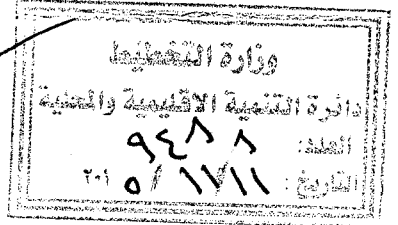 وزارة التخطيط
دائرة التنمية الاقليمية والمحلية
العدد: ٩٤٨٨
التاريخ: ١١/١١/٢٠١٥